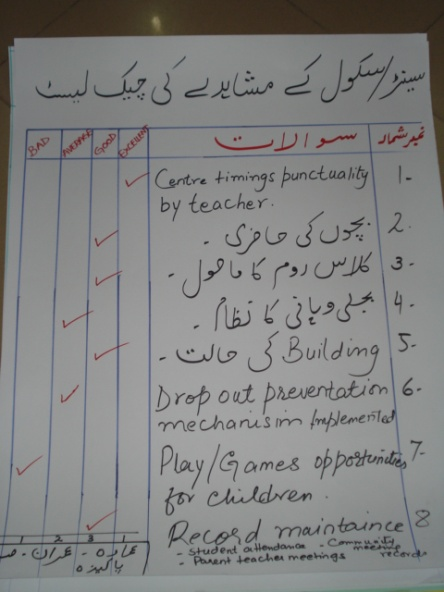 سینٹر/سکول کے مشاہدے کی چیک لیسٹ
نمبر شمار سوالات EXCELLENT GOOD AVERAGE BAD
1- Centre timings punctuality
by teacher.
2. بچوں کی حاضری -
3- کلاس روم کا ماحول -
4- بجلی و پانی کا نظام -
5- Building کی حالت -
6- Drop out preventation
mechanisim Implemented
7- Play/Games opportunities
for children.
8 Record maintaince
- Student attendance - Community
meeting
records
- Parent teacher meetings
1 2 3 1
عمارہ - عمران -
پاکیزہ